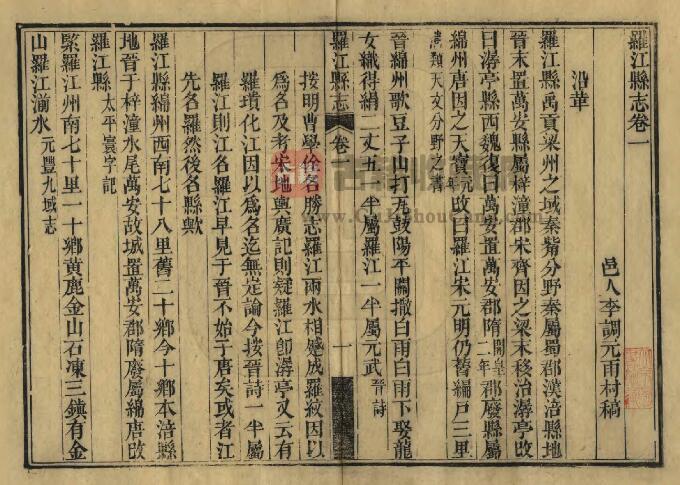 羅江縣志卷一
邑人李調元雨村稿
沿革
羅江縣禹貢梁州之域秦觜分野秦屬蜀郡漢涪縣地
晉末置萬安縣屬梓潼郡宋齊因之梁末移治潺亭改
曰潺亭縣西魏復曰萬安置萬安郡隋開皇二年郡廢縣屬
綿州唐因之天寶元年改曰羅江宋元明仍舊編戶三里
舊類天文分野之書
晉綿州歌豆子山打瓦鼓陽平關撒白雨白雨下娶龍
女織得絹二丈五一半屬羅江一半屬元武晉詩
羅江縣志
卷一
一
按明曹學佺名勝志羅江兩水相蹙成羅紋因以
為名及考宋地輿廣記則疑羅江即潺亭又云有
羅璝化江因以為名迄無定論今按晉詩一半屬
羅江則江名羅江早見于晉不始于唐矣或者江
先名羅然後名縣歟
羅江縣綿州西南七十八里舊二十鄉今十鄉本涪縣
地晉于梓潼水尾萬安故城置萬安郡隋廢屬綿唐改
羅江縣太平寰宇記
緊羅江州南七十里一十鄉黃鹿金山石凍三鎮有金
山羅江湔水元豐九域志